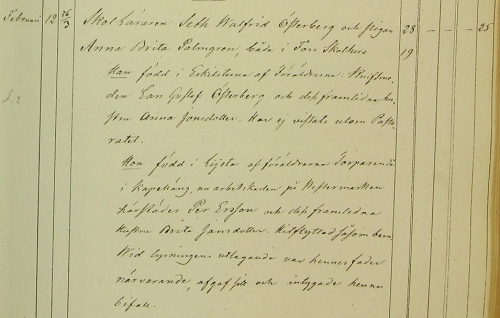 Februari 12 26/3 Skolläraren Seth Walfrid Österberg och pigan 28 - - - 25
Anna Brita Palmgren, båda i Tors Skolhus 19
Han född i Eskilstuna af Föräldrarne:
den Lars Gustaf Österberg och dess framlidna hu-
stru Anna Jonsdotter. Har ej vistats utom Pasto-
ratet.
Hon född i Lista af föräldrarna Torparen
i Kapelläng, nu arbetskarlen på Westermarken
härstädes Per Ersson och dess framledna
hustru Brita Jansdotter. Hitflyttad såsom barn.
Wid lysningens uttagande var hennes fader
närvarande, afgaf sitt och intygade hennes
bifall.